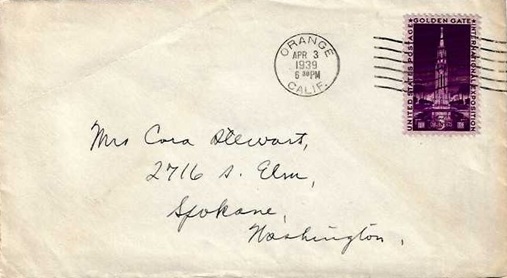 ORANGE
APR 3
1939
6 30 PM
CALIF.
GOLDEN GATE
INTERNATIONAL EXPOSITION
UNITED STATES POSTAGE
3¢
Mrs Cora Stewart,
2716 S. Elm,
Spokane,
Washington.